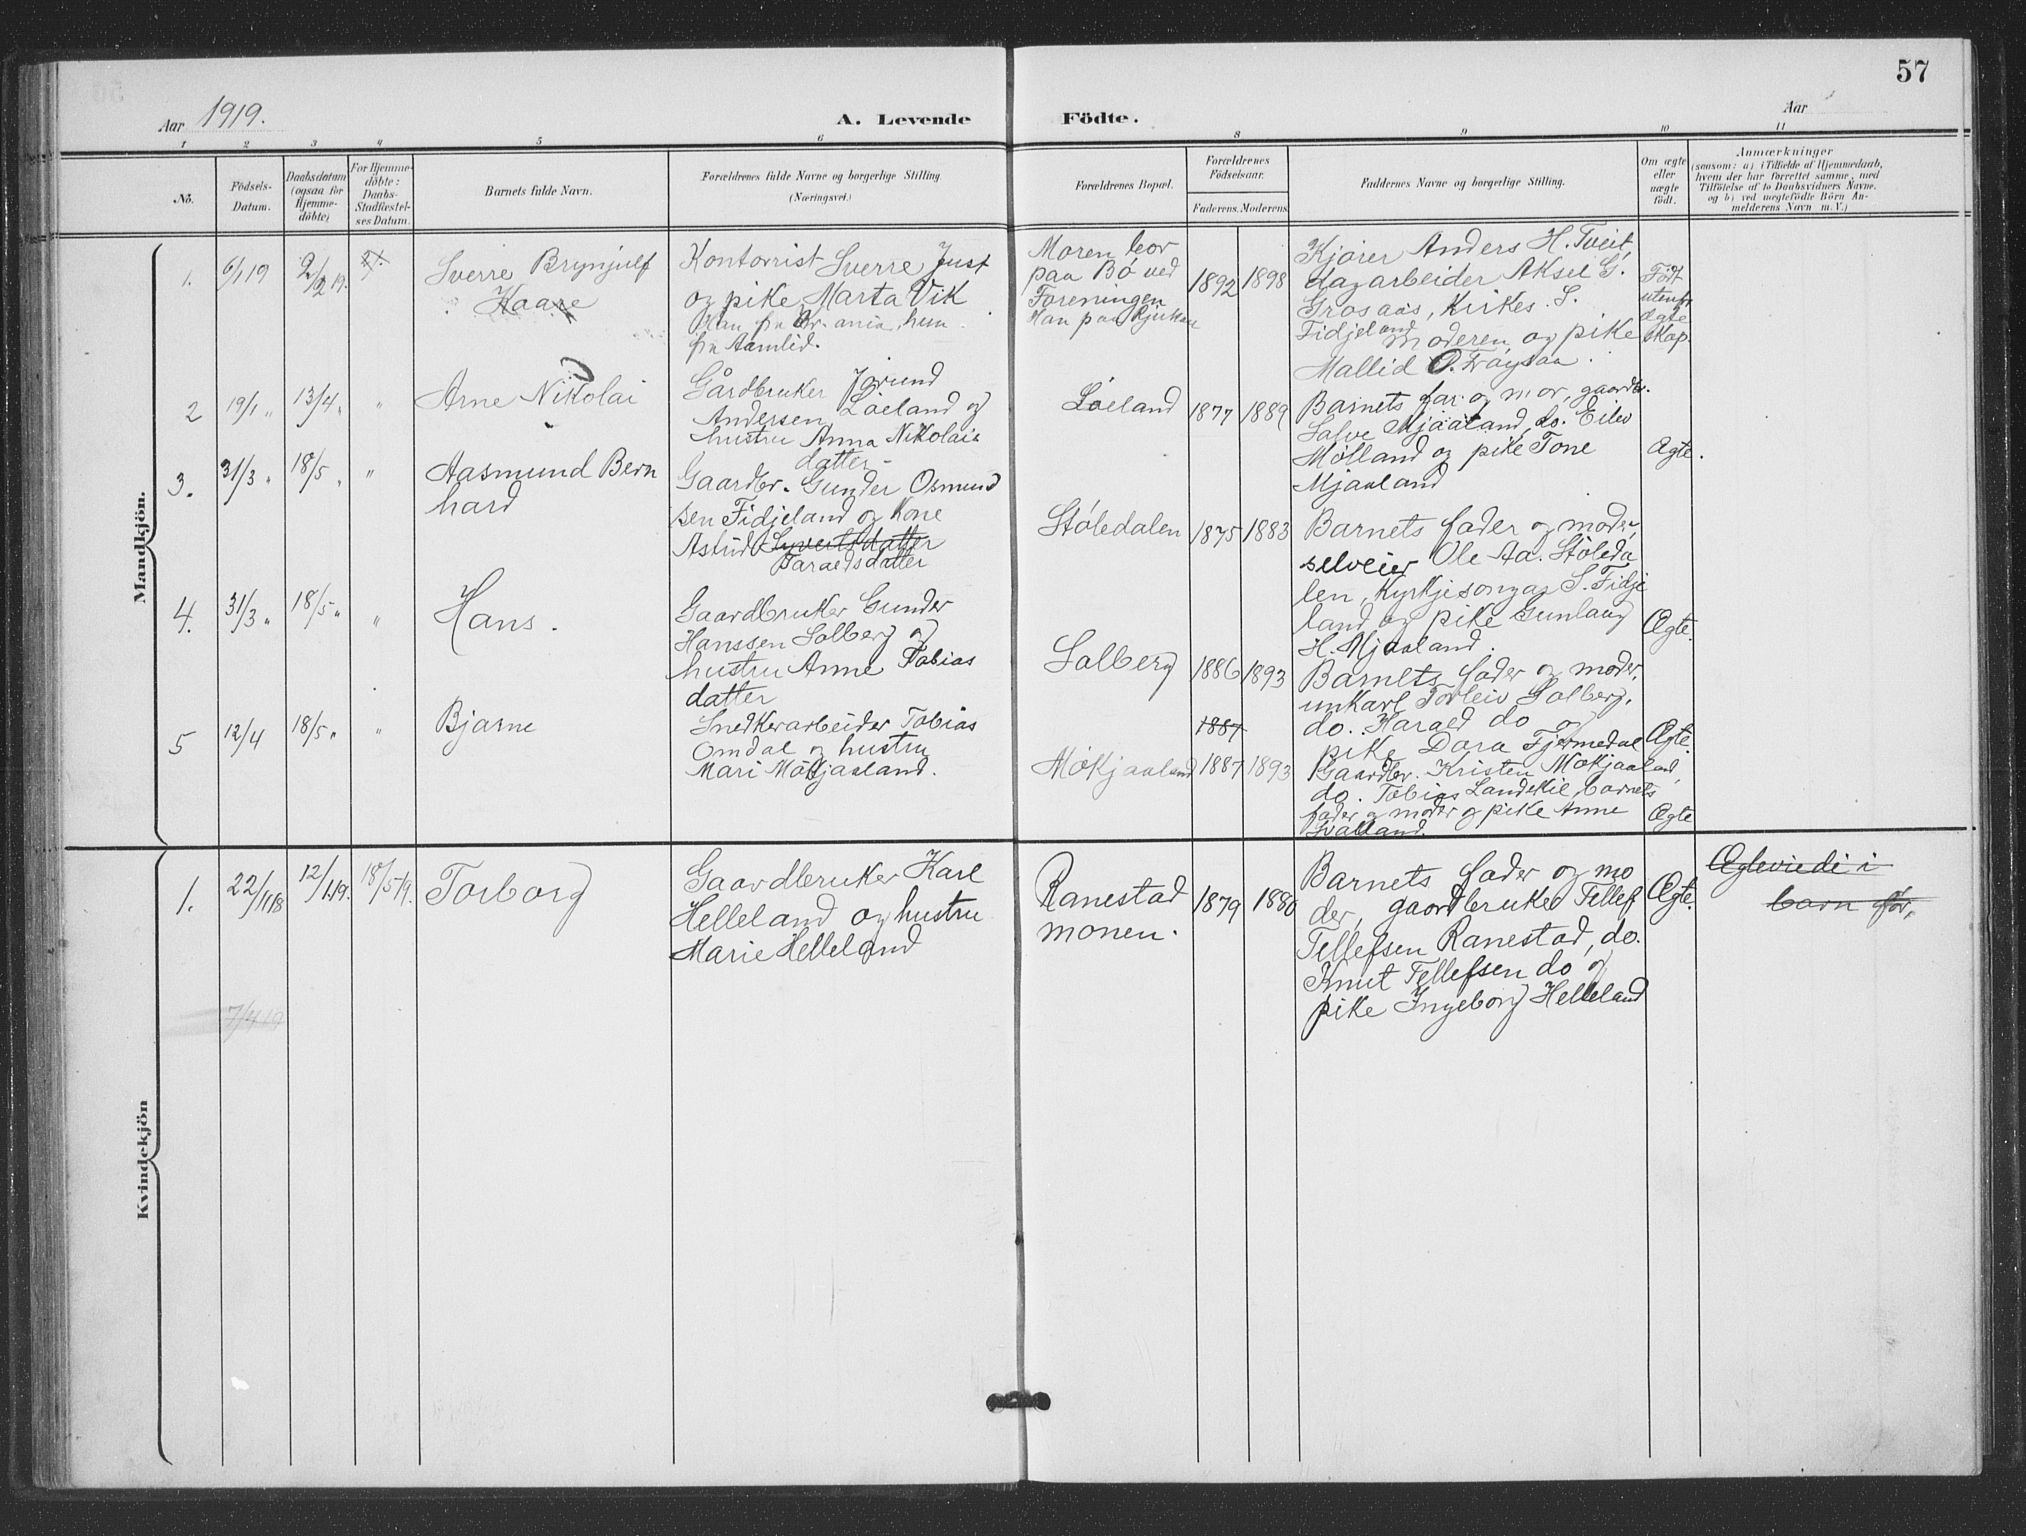 57
Aar 1919.
A. Levende Födte.
Aar
1 2 3 4 5 6 8 9 10 11
No.
Födsels-
Datum.
Daabsdatum
(ogsaa for
Hjemme-
döbte)
For Hjemme-
döbte:
Daabs-
Stadfæstel-
ses Datum.
Barnets fulde Navn.
Forældrenes fulde Navne og borgerlige Stilling
(Næringsvei.)
Forældrenes Bopæl.
Forældrenes
Födselsaar.
Faderens. Moderens.
Faddernes Navne og borgerlige Stilling.
Om ægte
eller
uægte
födt.
Anmærkninger
(saasom: a) i Tilfælde af Hjemmedaab,
hvem der har forrettet samme, med
Tilföielse af to Daabsvidners Navne,
og b) ved uægtefödte Börn An-
melderens Navn m. V.)
Mandkjön.
1. 6/1 19 2/2 19.
Sverre Brynjulf
Kaare
Kontorrist Sverre Just
og pike Marta Vik
Man fra Kr.ania, hun
fra Aamlid.
Moren bor
paa Bø ved
Foreningen
Man paa Rjukan
1892 1898
Kjører Anders H. Tveit
dagarbeider Aksel G.
Grosaas, Kirkes. S.
Fidjeland
moderen og pike
Mallid O. Frøysaa.
Født
utenfr
ægte
skap.
2 19/1 „ 13/4 „ „
Arne Nikolai
Gårdbruker Jørund
Andersen Løeland og
hustru Anna Nikolais
datter
Løeland
1877 1889
Barnets far og mor, gaardbr.
Salve Mjaaland, do. Eilev
Mølland og pike Tone
Mjaaland
Ægte.
3. 31/3 „ 18/5 „ „
Aasmund Bern
hard
Gaardbr. Gunder Osmund
sen Fidjeland og Kone
Astrid Syvertsdatter
Baraldsdatter
Støledalen
1875 1883
Barnets fader og moder,
selveier Ole Aa. Støleda
len, Kyrkjesongar S. Fidje
land og pike Gunlaug
H. Mjaaland.
Ægte.
4. 31/3 „ 18/5 „ „
Hans.
Gaardbruker Gunder
Hanssen Solberg og
hustru Anne Tobias
datter
Solberg
1886 1893
Barnets fader og moder,
unkarl Torleiv Solberg,
do. Harald do og
pike Dora Fjermedal
Ægte.
5 12/4 18/5 „ „
Bjarne
Snedkerarbeider Tobias
Omdal og hustru
Mari Møkjaaland.
Møkjaaland
1887
1887 1893
Gaardbr. Kristen Møkjaaland,
do. Tobias Landskil, barnets
fader og moder og pike Anne
Svaland.
Ægte
Kvindekjön
1. 22/11 18 12/1 19. 18/5 19.
Torborg
Gaardbruker Karl
Helleland og hustru
Marie Helleland
Ranestad
monen.
1879 1880
Barnets fader og mo
der, gaordbruker Tellef
Tellefsen Ranestad, do.
Knut Tellefsen do og
pike Ingeborg Helleland
Ægte.
Ægteviedi i
barn før,
7/4 19